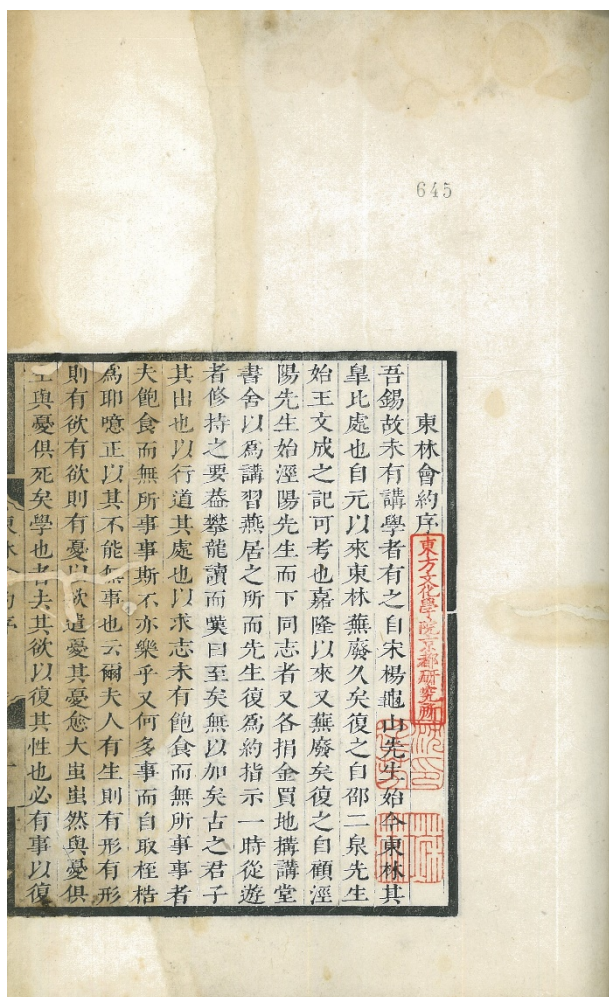 645
東林會約序
東方文化學院京都研究所
吾錫故未有講學者有之自宋楊龜山先生始今東林其
皐比處也自元以來東林蕪廢久矣復之自邵二泉先生
始王文成之記可考也嘉隆以來又蕪廢矣復之自顧涇
陽先生始涇陽先生而下同志者又各捐金買地搆講堂
書舍以爲講習燕居之所而先生復爲約指示一時從遊
者修持之要葢攀龍讀而嘆曰至矣無以加矣古之君子
其出也以行道其處也以求志未有飽食而無所事事者
夫飽食而無所事事斯不亦樂乎又何多事而自取桎梏
爲耶噫正以其不能無事也云爾夫人有生則有形有形
則有欲有欲則有憂以欲遣憂其憂愈大蚩蚩然與憂俱
生與憂俱死矣學也者夫其欲以復其性也必有事以復